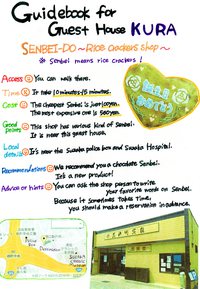 Guidebook for
Guest House KURA
SENBEI-DO ~Rice crackers shop~
※ Senbei means rice crackers!
Access☺ You can walk there.
Time☺ It take 10 minutes/15 minutes.
Cost☺ The cheapest Senbei is just 100yen.
The most expensive one is 500yen.
Good points☺ This shop has various kind of Senbei.
It is near the guest house.
Local details☺ It's near the Suzaka police box and Suzaka Hospital.
Recommendations☺ We recommend you a chocolate Senbei.
It's a new product!
Advice or hints☺ You can ask the shop person to write
your favorite words on Senbei.
Because it sometimes takes time,
you should make a reservation in advance.